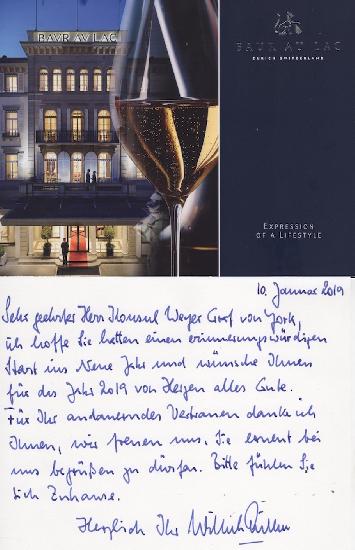 BAUR AU LAC
BAUR AU LAC
ZURICH SWITZERLAND
EXPRESSION
OF A LIFESTYLE
10. Januar 2019
Sehr geehrter Herr Konsul Weyer Graf von York,
ich hoffe Sie hatten einen erinnerungswürdigen
Start ins Neue Jahr und wünsche Ihnen
für das Jahr 2019 von Herzen alles Gute.
Für Ihr andauerndes Vertrauen danke ich
Ihnen, wir freuen uns, Sie erneut bei
uns begrüßen zu dürfen. Bitte fühlen Sie
sich Zuhause.
Herzlich Ihr